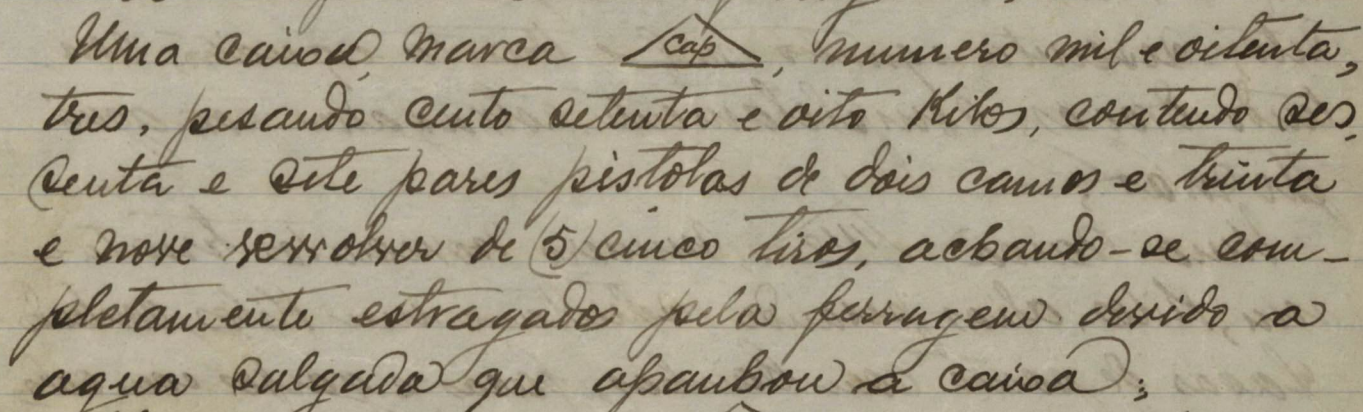 Uma caixa, marca cap, numero mil e oitenta,
tres, pesando cento setenta e oito Kilos, contendo ses,
senta e sete pares pistolas de dois canos e trinta
e nove revolver de (5) cinco tiros, achando-se com-
pletamente estragados pela ferrugem devido a
agua salgada que apanhou a caixa;